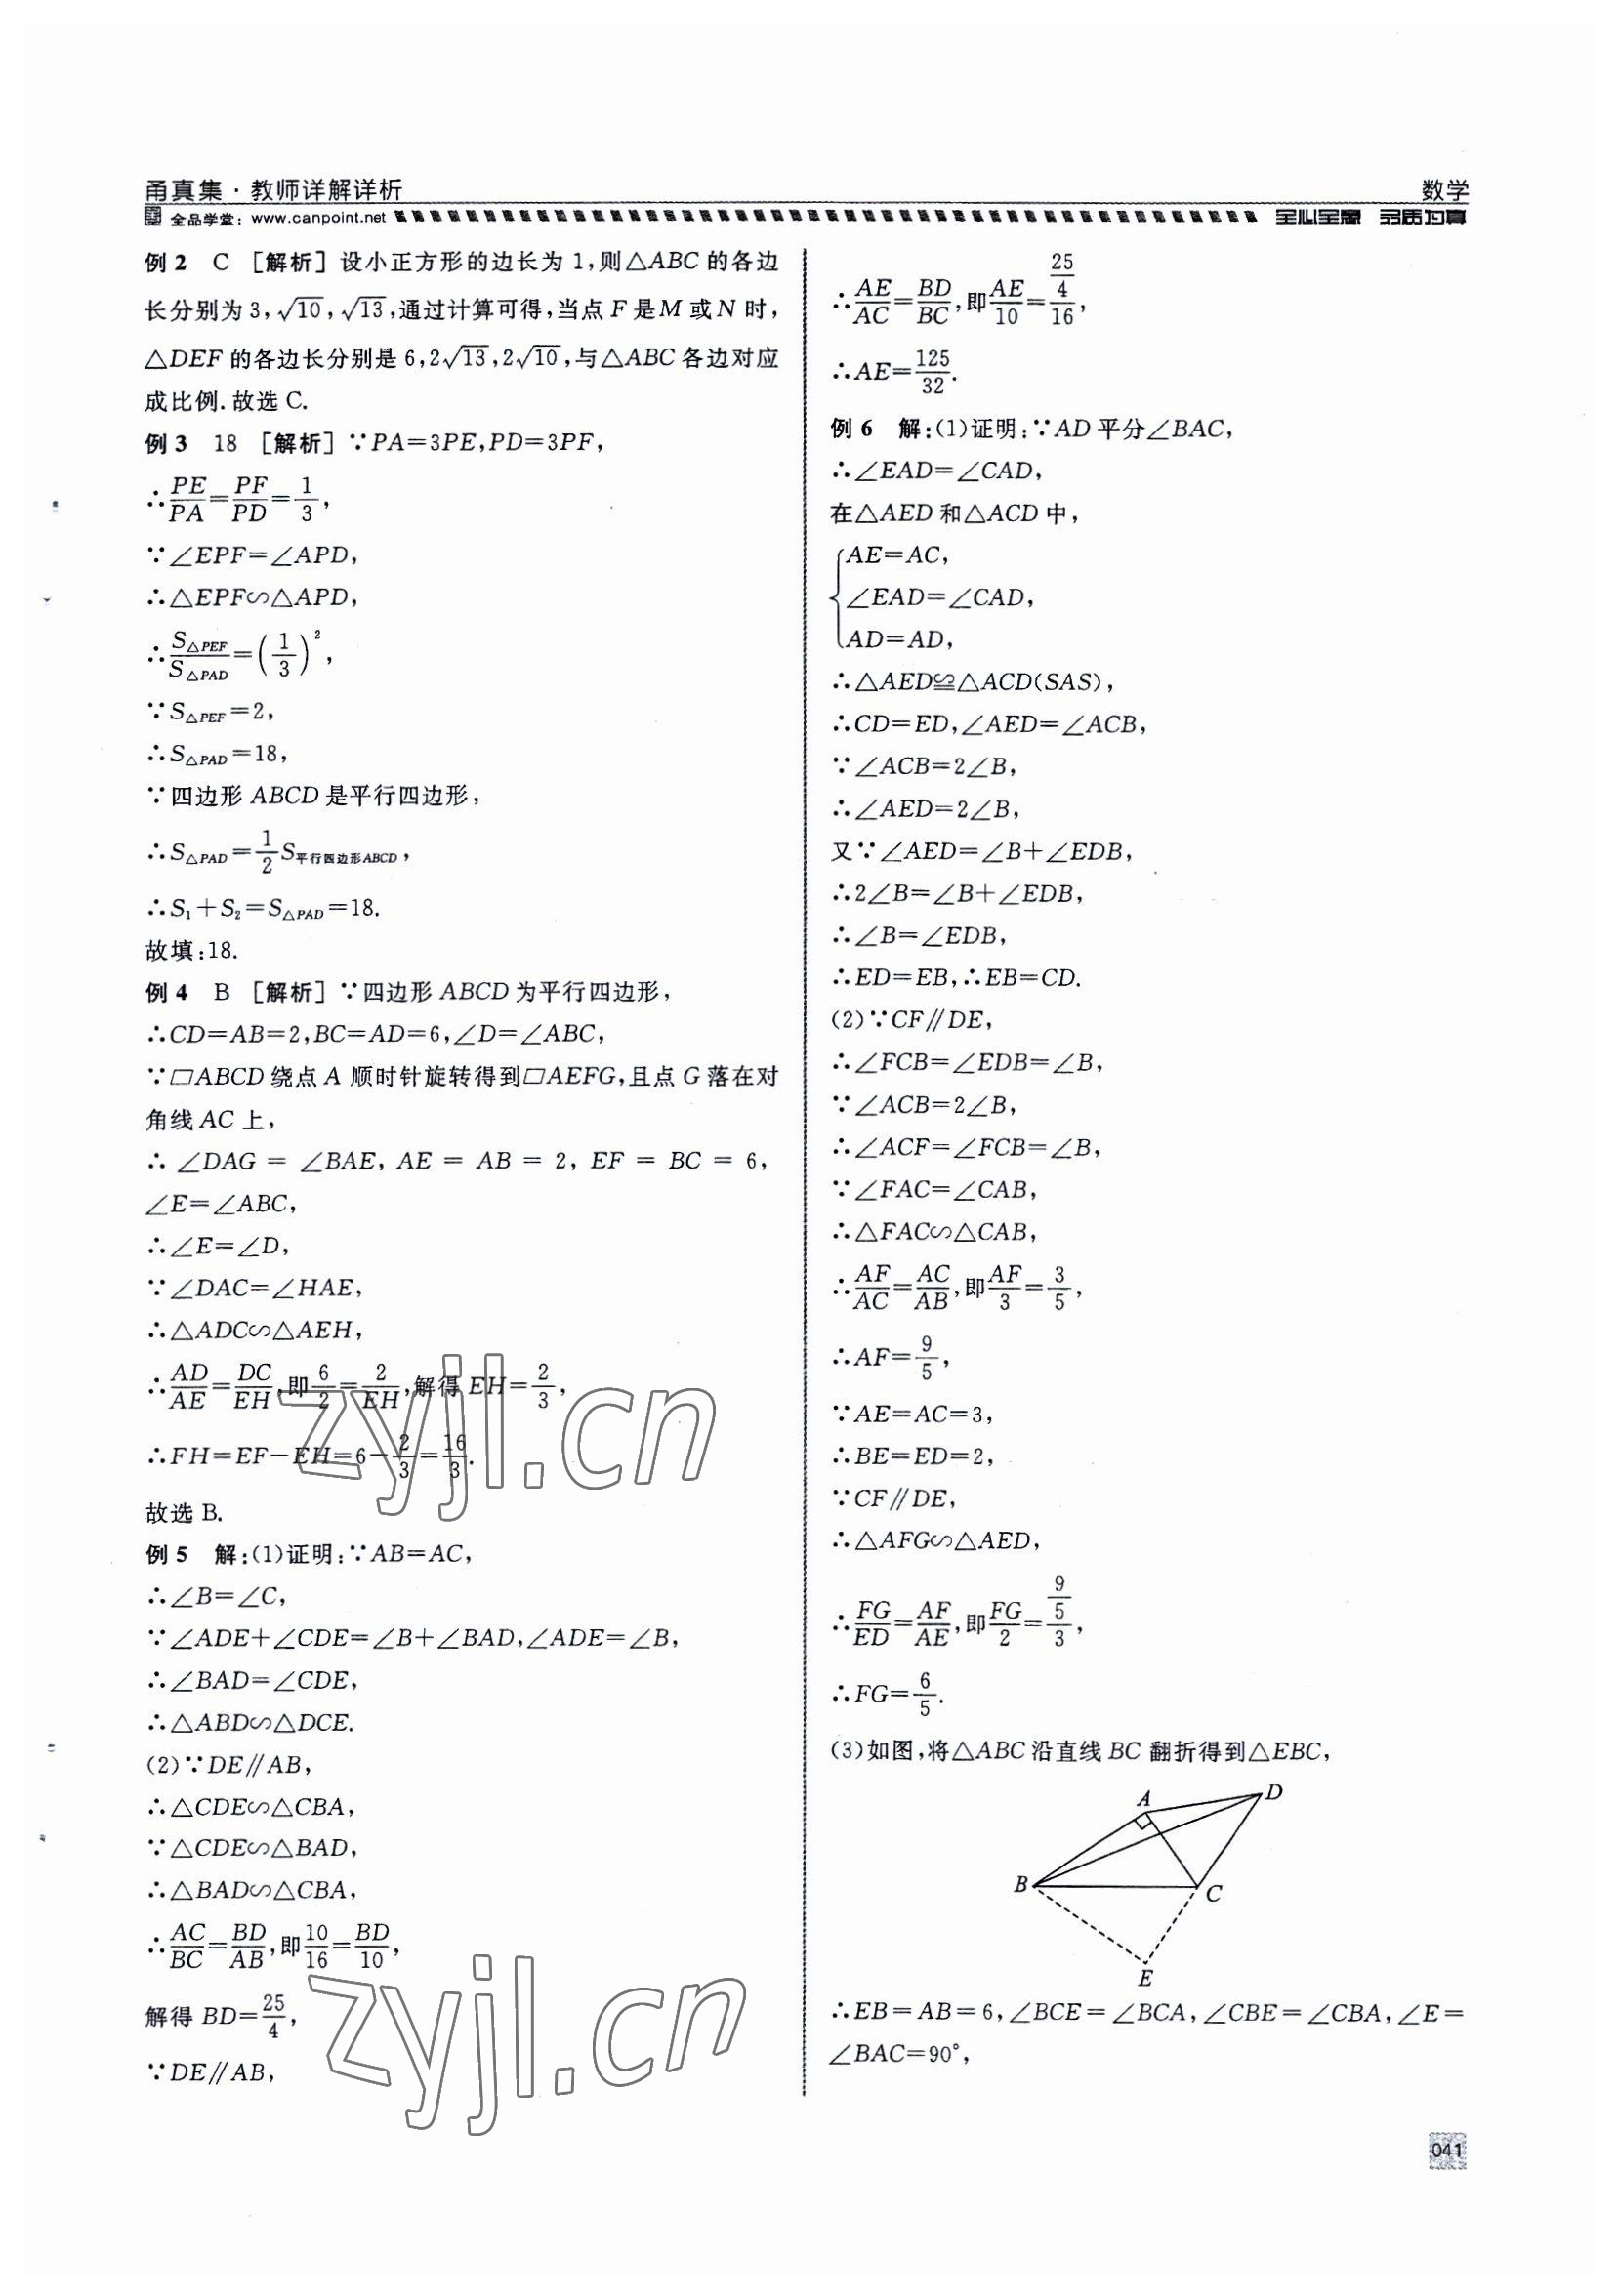 甬真集·教师详解详析
数学
全品学堂：www.canpoint.net
全心全意 品质为真
例2 C [解析] 设小正方形的边长为1,则△ABC的各边
长分别为3,√10,√13,通过计算可得,当点F是M或N时,
△DEF的各边长分别是6,2√13,2√10,与△ABC各边对应
成比例.故选C.
例3 18 [解析] ∵PA=3PE,PD=3PF,
∴PE/PA=PF/PD=1/3,
∵∠EPF=∠APD,
∴△EPF∽△APD,
∴S△PEF/S△PAD=(1/3)²,
∵S△PEF=2,
∴S△PAD=18,
∵四边形ABCD是平行四边形,
∴S△PAD=1/2S平行四边形ABCD,
∴S₁+S₂=S△PAD=18.
故填:18.
例4 B [解析] ∵四边形ABCD为平行四边形,
∴CD=AB=2,BC=AD=6,∠D=∠ABC,
∵▱ABCD绕点A顺时针旋转得到▱AEFG,且点G落在对
角线AC上,
∴∠DAG=∠BAE,AE=AB=2,EF=BC=6,
∠E=∠ABC,
∴∠E=∠D,
∵∠DAC=∠HAE,
∴△ADC∽△AEH,
∴AD/AE=DC/EH,即6/2=2/EH,解得EH=2/3,
∴FH=EF-EH=6-2/3=16/3.
故选B.
例5 解:(1)证明:∵AB=AC,
∴∠B=∠C,
∵∠ADE+∠CDE=∠B+∠BAD,∠ADE=∠B,
∴∠BAD=∠CDE,
∴△ABD∽△DCE.
(2)∵DE∥AB,
∴△CDE∽△CBA,
∵△CDE∽△BAD,
∴△BAD∽△CBA,
∴AC/BC=BD/AB,即10/16=BD/10,
解得BD=25/4,
∵DE∥AB,
∴AE/AC=BD/BC,即AE/10=(25/4)/16,
∴AE=125/32.
例6 解:(1)证明:∵AD平分∠BAC,
∴∠EAD=∠CAD,
在△AED和△ACD中,
{AE=AC,
∠EAD=∠CAD,
AD=AD,
∴△AED≌△ACD(SAS),
∴CD=ED,∠AED=∠ACB,
∵∠ACB=2∠B,
∴∠AED=2∠B,
又∵∠AED=∠B+∠EDB,
∴2∠B=∠B+∠EDB,
∴∠B=∠EDB,
∴ED=EB,∴EB=CD.
(2)∵CF∥DE,
∴∠FCB=∠EDB=∠B,
∵∠ACB=2∠B,
∴∠ACF=∠FCB=∠B,
∵∠FAC=∠CAB,
∴△FAC∽△CAB,
∴AF/AC=AC/AB,即AF/3=3/5,
∴AF=9/5,
∵AE=AC=3,
∴BE=ED=2,
∵CF∥DE,
∴△AFG∽△AED,
∴FG/ED=AF/AE,即FG/2=(9/5)/3,
∴FG=6/5.
(3)如图,将△ABC沿直线BC翻折得到△EBC,
A
D
B
C
E
∴EB=AB=6,∠BCE=∠BCA,∠CBE=∠CBA,∠E=
∠BAC=90°,
041
zyjl.cn
zyjl.cn